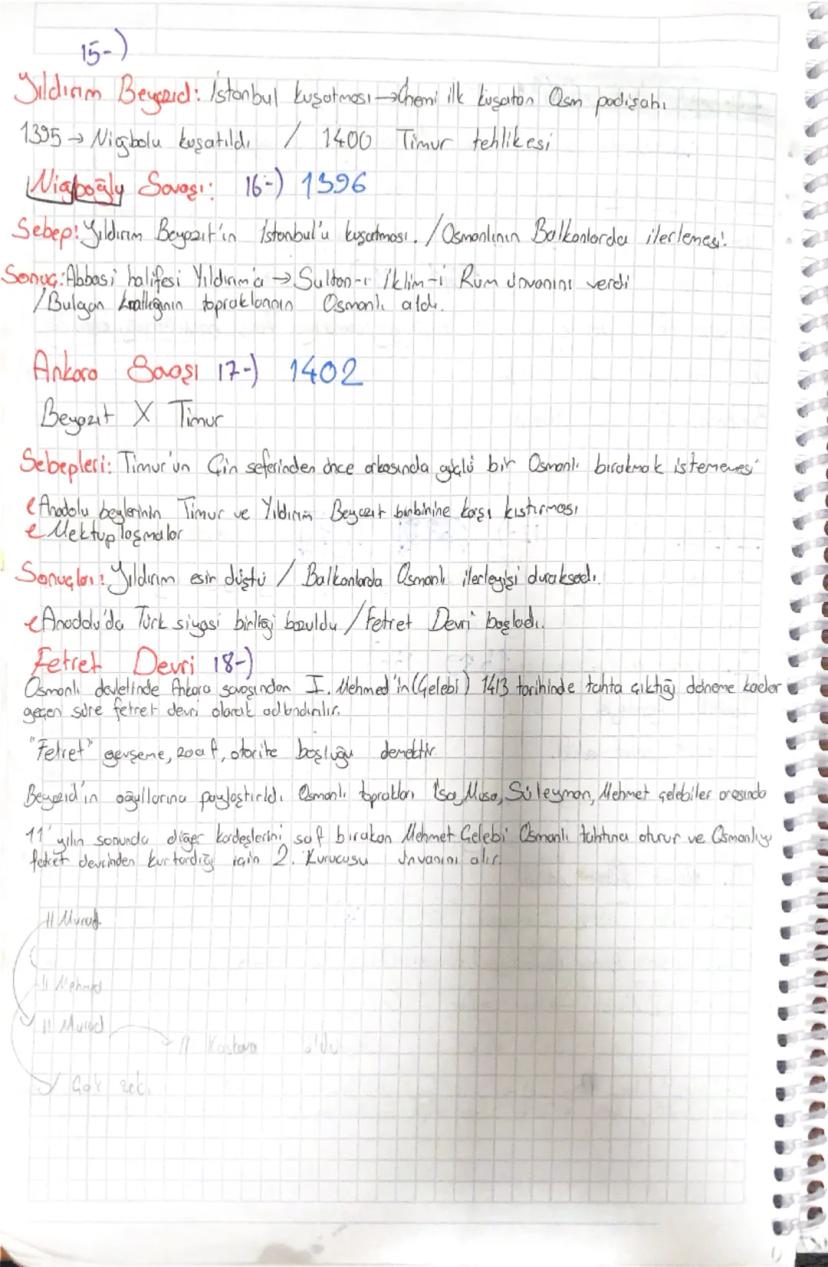 15-)
Yıldırım Beyezıd: İstanbul kuşatması → ilk kuşatan Osm padişahı
1395 → Niğbolu kuşatıldı / 1400 Timur tehlikesi
Savaşı: 16-) 1396
Sebep: Yıldırım Beyazıt'ın İstanbul'u kuşatması. / Osmanlının Balkanlarda ilerlemesi.
Sonuç: Abbasi halifesi Yıldırım'a → Sultan-ı İklim-i Rum ünvanını verdi
/ Bulgar krallığının topraklarının Osmanlı aldı.
Ankara Savaşı 17-) 1402
Beyazıt X Timur
Sebepleri: Timur'un Çin seferinden önce arkasında güçlü bir Osmanlı bırakmak istememesi
Anadolu beylerinin Timur ve Yıldırım Beyazıt birbirine karşı kıstırması
Mektuplaşmalar
Sonuçları: Yıldırım esir düştü / Balkanlarda Osmanlı ilerleyişi duraksadı.
Anadolu'da Türk siyasi birliği bozuldu / Fetret Devri başladı.
Fetret Devri 18-)
Osmanlı devletinde Ankara savaşından I. Mehmed'in (Çelebi) 1413 tarihinde tahta çıktığı döneme kadar
geçen süre fetret devri olarak adlandırılır.
"Fetret" gevşeme, zaaf, otorite boşluğu demektir.
Beyezıd'ın oğullarına paylaştırıldı. Osmanlı toprakları İsa, Musa, Süleyman, Mehmet çelebiler arasında
11 yılın sonunda diğer kardeşlerini saf bırakan Mehmet Çelebi Osmanlı tahtına oturur ve Osmanlıyı
fetret devrinden kurtardığı için 2. Kurucusu ünvanını alır.
II Murad
II Mehmed
II Murad
II Kosova